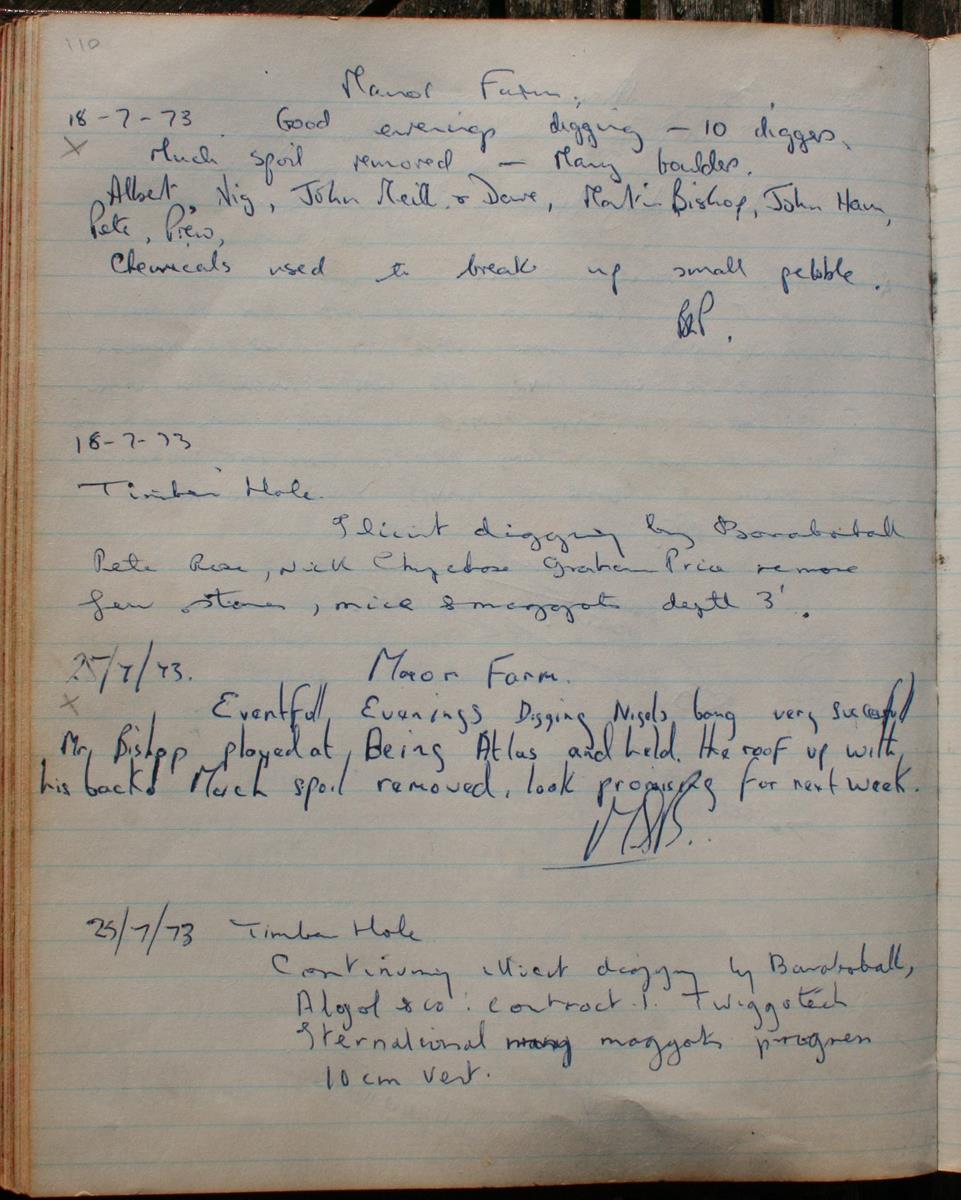 110
Manor Farm.
18-7-73. Good evenings digging - 10 diggers,
X Much spoil removed - Many boulders.
Albert, Nig, John Neill & Dave, Martin Bishop, John Ham,
Pete, Prew,
Chemicals used to break up small pebble.
18-7-73
Timber Hole.
Ilicit digging by Barabatball
Pete Rose, Nick Graham Price remove
few stones, mice & maggots depth 3'.
25/7/73. Manor Farm.
X Eventfull Evenings Digging Nigels bang very succesful
Mr, Bishop played at Being Atlas and held the roof up with
his back. Much spoil removed, look promising for next week.
MSB..
25/7/73 Timber Hole
Continuing illicit digging by
Algol & co: contract 1. Twiggotech
Iternational maggots progress
10 cm vert.